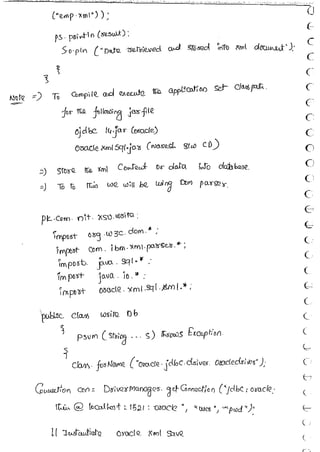 ("emp.xml"));
ps.println (result);
S.o.pln ("Data retrieved and stored into xml document");
}
}
Note => To compile and execute the application set classpath.
for the following jar file
ojdbc 14.jar (oracle)
oracle xml sql.jar (Naresh s/w CD)
=> Store the xml Content or data into database.
=> To this we will be using Dom parser.
pk.com.nit.xsu.write;
import org.w3c.dom.*;
import com.ibm.xml.parser.*;
import java.sql.*;
import java.io.*;
import oracle.xml.sql.dml.*;
public class write Db
{
psvm (String ... s) throws Exception
{
Class.forName ("oracle.jdbc.driver.oracledriver");
Connection con = DriverManager.getConnection ("jdbc:oracle:
thin @ localhost : 1521 : oracle", "user", "pwd");
// Instantiate oracle xml save